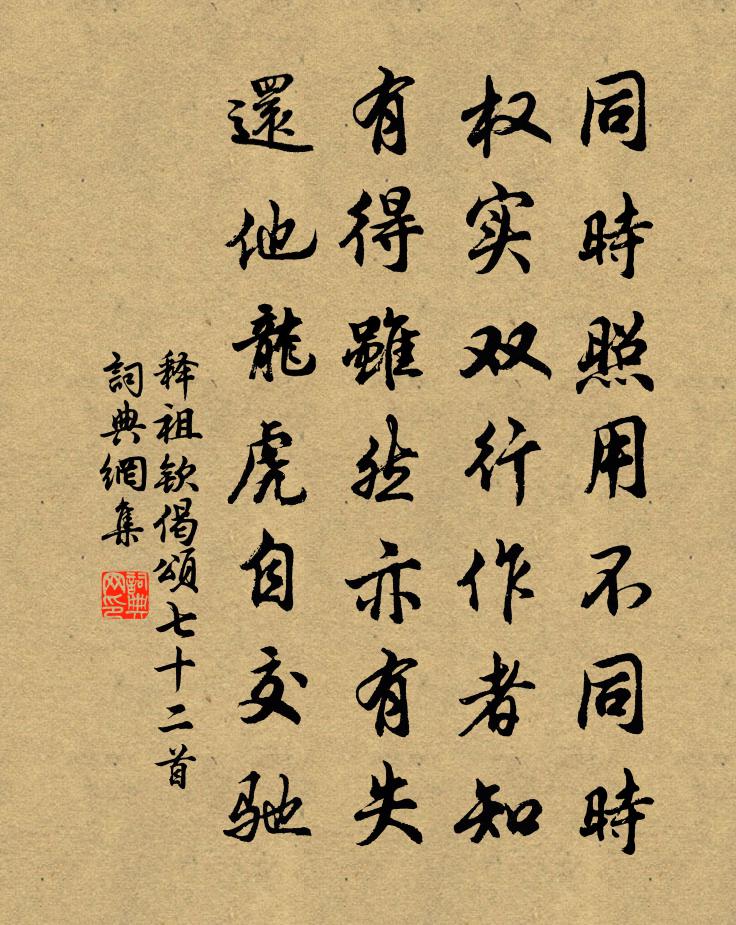 同時照用不同時
权实双行作者知
有得雖然亦有失
還他龍虎自交驰
释祖钦偈頌七十二首
詞典網集
詞典网印